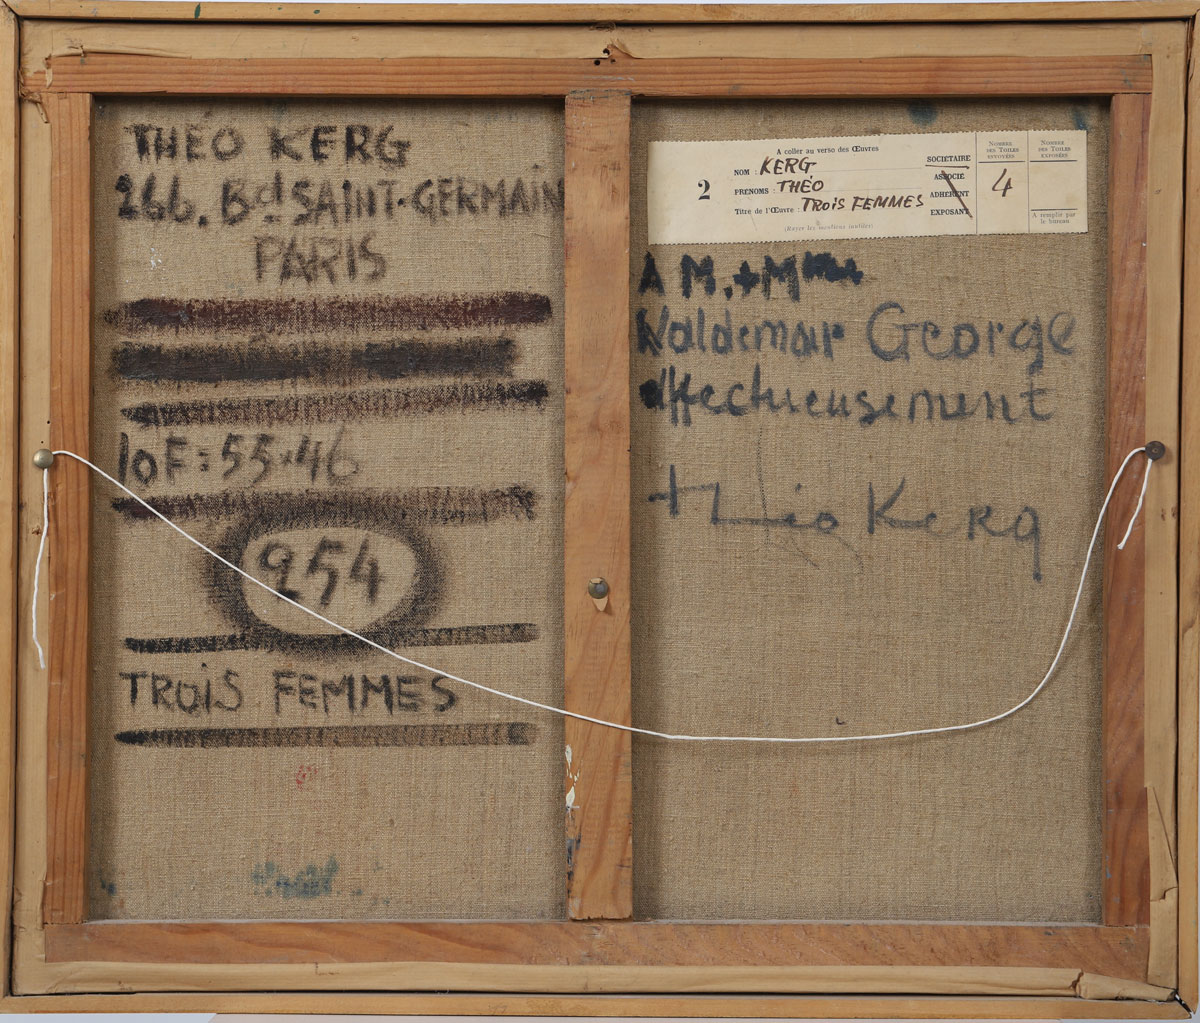 THÉO KERG
266. Bd SAINT-GERMAIN
PARIS
10F: 55.46
254
TROIS FEMMES
A coller au verso des Œuvres
2
NOM : KERG
PRÉNOMS : THÉO
Titre de l'Œuvre : TROIS FEMMES
(Rayer les mentions inutiles)
SOCIÉTAIRE
ASSOCIÉ
ADHÉRENT
EXPOSANT
NOMBRE
DES TOILES
ENVOYÉES
4
NOMBRE
DES TOILES
EXPOSÉES
A remplir par
le bureau
A M. + Mme
Waldemar George
affectueusement
théo Kerg